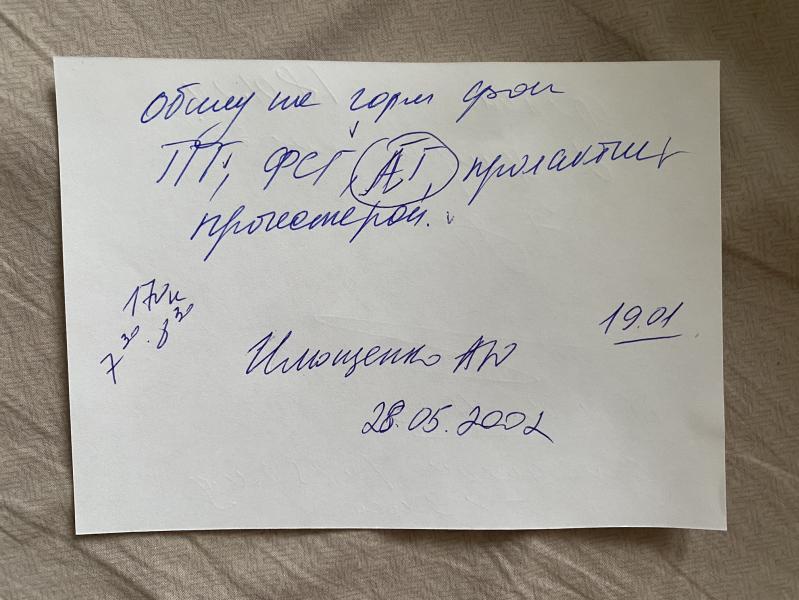 Обслед на горм фон
ТТГ, ФСГ, ЛГ, пролактин
прогестерон.
170к
7³⁰. 8³⁰
19.01
Илющенко АЮ
28.05.2002